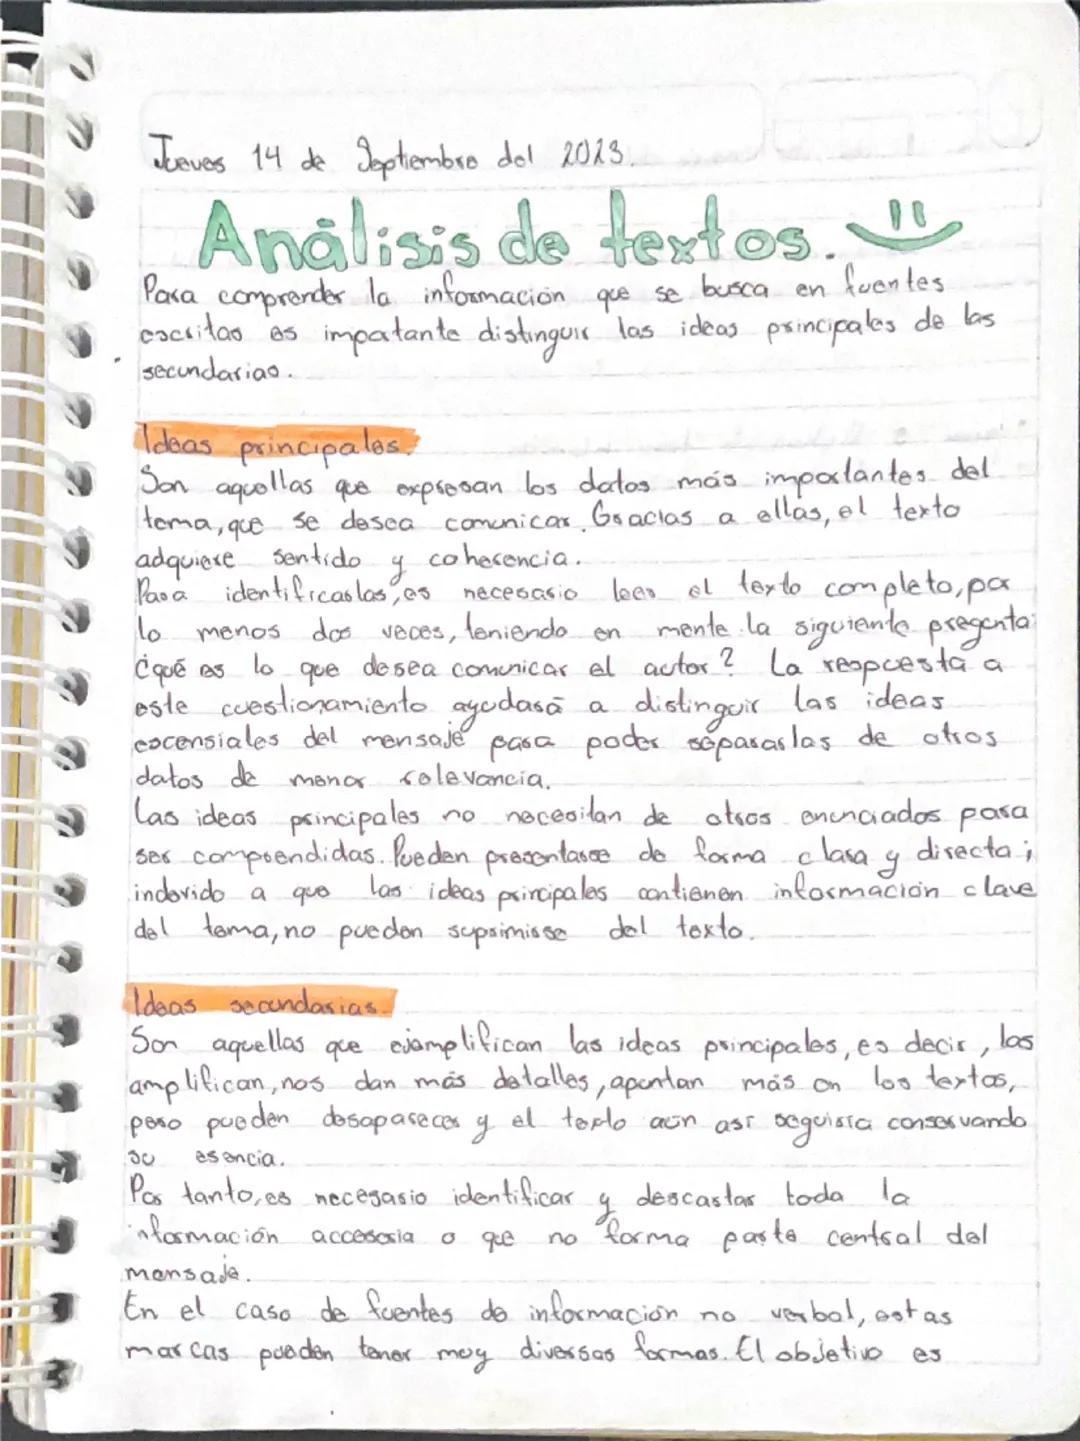 Jueves 14 de Septiembre del 2023.
Análisis de textos.
Para comprender la información que se busca en fuentes
escritas es importante distinguir las ideas principales de las
secundarias.
Ideas principales.
Son aquellas que expresan los datos más importantes del
tema, que se desea comunicar. Gracias a ellas, el texto
adquiere sentido y coherencia.
Para identificarlas, es necesario leer el texto completo, por
lo menos dos veces, teniendo en mente la siguiente pregunta:
¿qué es lo que desea comunicar el autor? La respuesta a
este cuestionamiento ayudará a distinguir las ideas
escensiales del mensaje para poder separarlas de otros
datos de menor relevancia.
Las ideas principales no necesitan de otros enunciados para
ser comprendidas. Pueden presentarse de forma clara y directa;
indevido a que las ideas principales contienen información clave
del tema, no pueden suprimirse del texto.
Ideas secundarias.
Son aquellas que ejamplifican las ideas principales, es decir, las
amplifican, nos dan más detalles, apuntan más en los textos,
pero pueden desaparecer y el texto aún así seguiría conservando
su esencia.
Por tanto, es necesario identificar y descartar toda la
información accesoria o que no forma parte central del
mensaje.
En el caso de fuentes de información no verbal, estas
marcas pueden tener muy diversas formas. El objetivo es